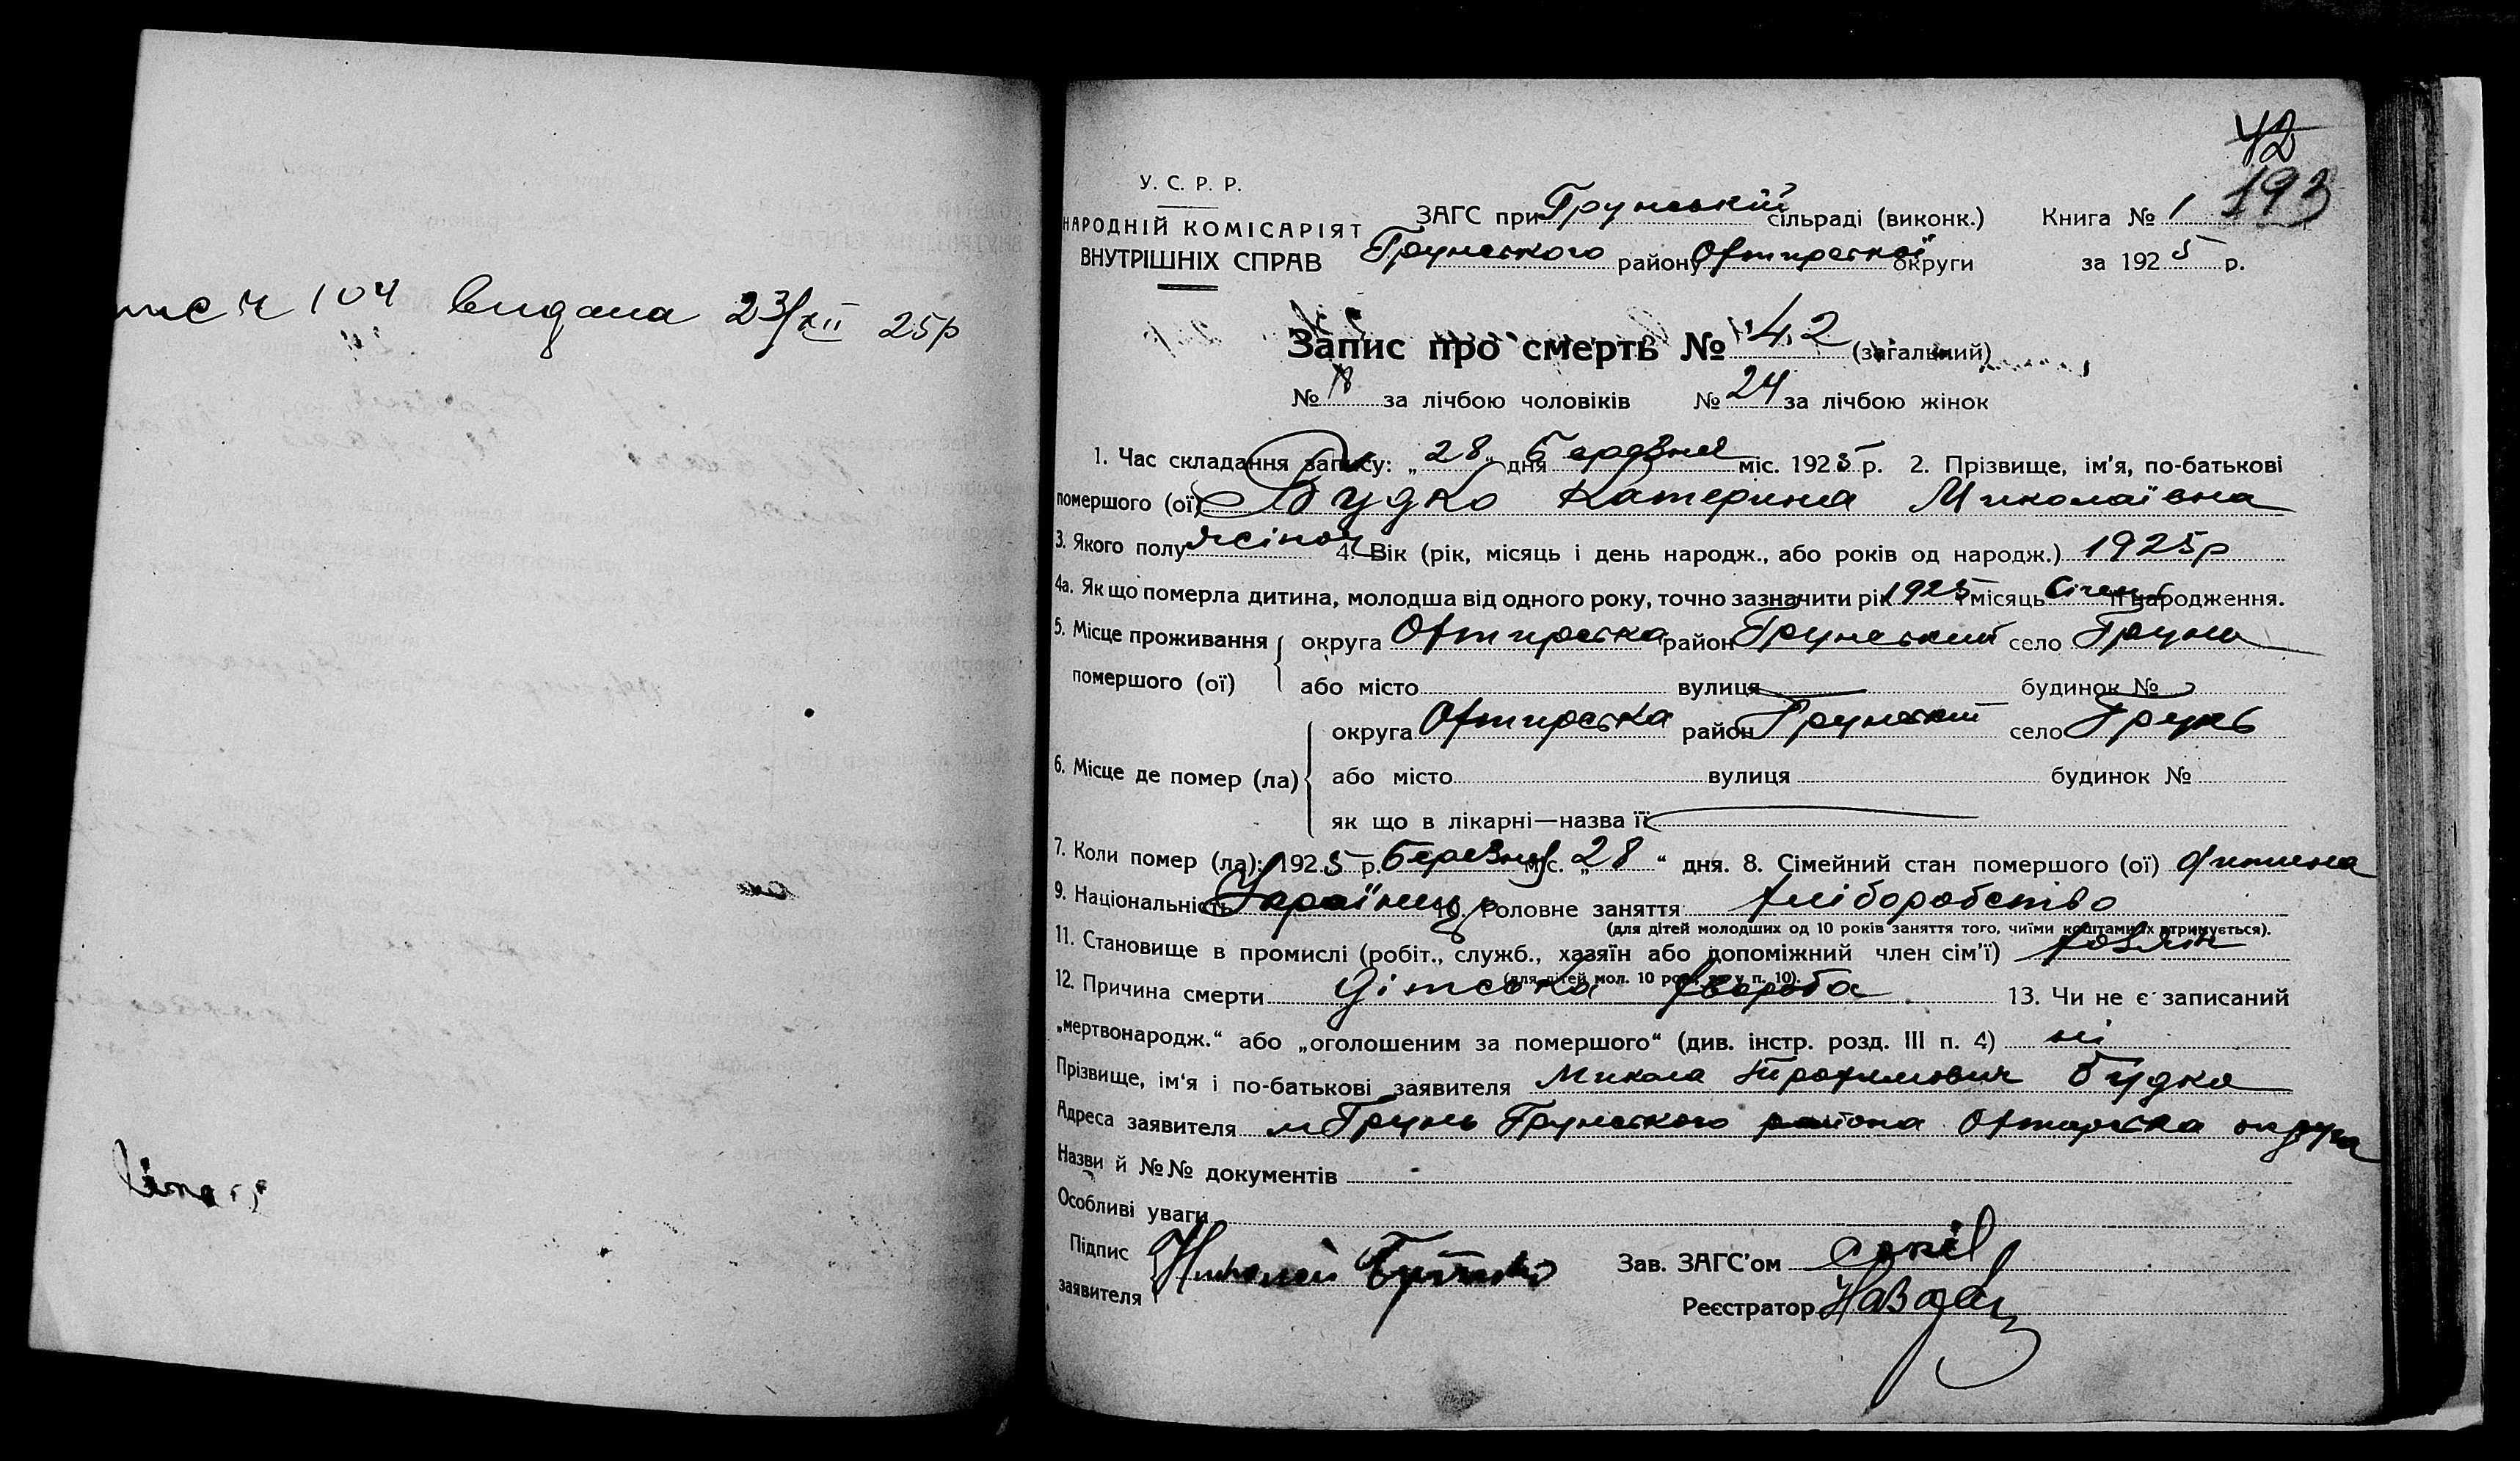 ч 104 видана 23/XII 25р
42
193
У. С. Р. Р.
НАРОДНІЙ КОМІСАРІЯТ
ВНУТРІШНІХ СПРАВ
ЗАГС при Грунській сільраді (виконк.) Книга № 1
Грунського району Охтирської округи за 1925 р.
Запис про смерть № 42 (загальний)
№ 18 за лічбою чоловіків № 24 за лічбою жінок
1. Час складання запису: „28„ дня Березня міс. 1925 р. 2. Прізвище, ім'я, по-батькові
помершого (ої) Будко Катерина Миколаївна
3. Якого полу жіноч 4. Вік (рік, місяць і день народж., або років од народж.) 1925р
4а. Як що померла дитина, молодша від одного року, точно зазначити рік 1925 і місяць Січень її народження.
5. Місце проживання помершого (ої) округа Охтирська район Грунський село Грунь
або місто вулиця будинок №
6. Місце де помер (ла) округа Охтирська район Грунський село Грунь
або місто вулиця будинок №
як що в лікарні—назва її
7. Коли помер (ла): 1925 р. Березня міс. „28“ дня. 8. Сімейний стан помершого (ої) дитина
9. Національність Українц 10. Головне заняття хліборобство
(для дітей молодших од 10 років заняття того, чиїми коштами їх утримується).
11. Становище в промислі (робіт., служб., хазяїн або допоміжний член сім'ї) хозяін
(для дітей мол. 10 рок. як у п. 10).
12. Причина смерти дітська хвороба 13. Чи не є записаний
„мертвонародж.“ або „оголошеним за помершого“ (див. інстр. розд. III п. 4) ні
Прізвище, ім'я і по-батькові заявителя Микола Трохимович Будко
Адреса заявителя м Грунь Грунського района Охтирська округа
Назви й №№ документів
Особливі уваги
Підпис заявителя Николай Будко
Зав. ЗАГС'ом
Реєстратор